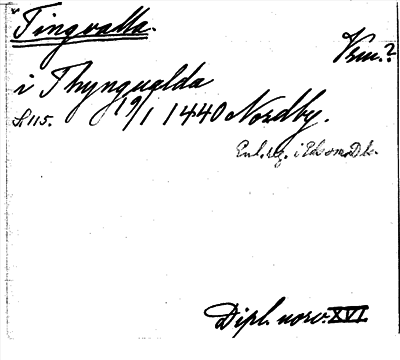 Tingvalla.
Vrm.?
i Thyngualda
S. 115. 19/1 1440 Nordby.
Enl. reg. i Ed
Dipl. norv. XVI